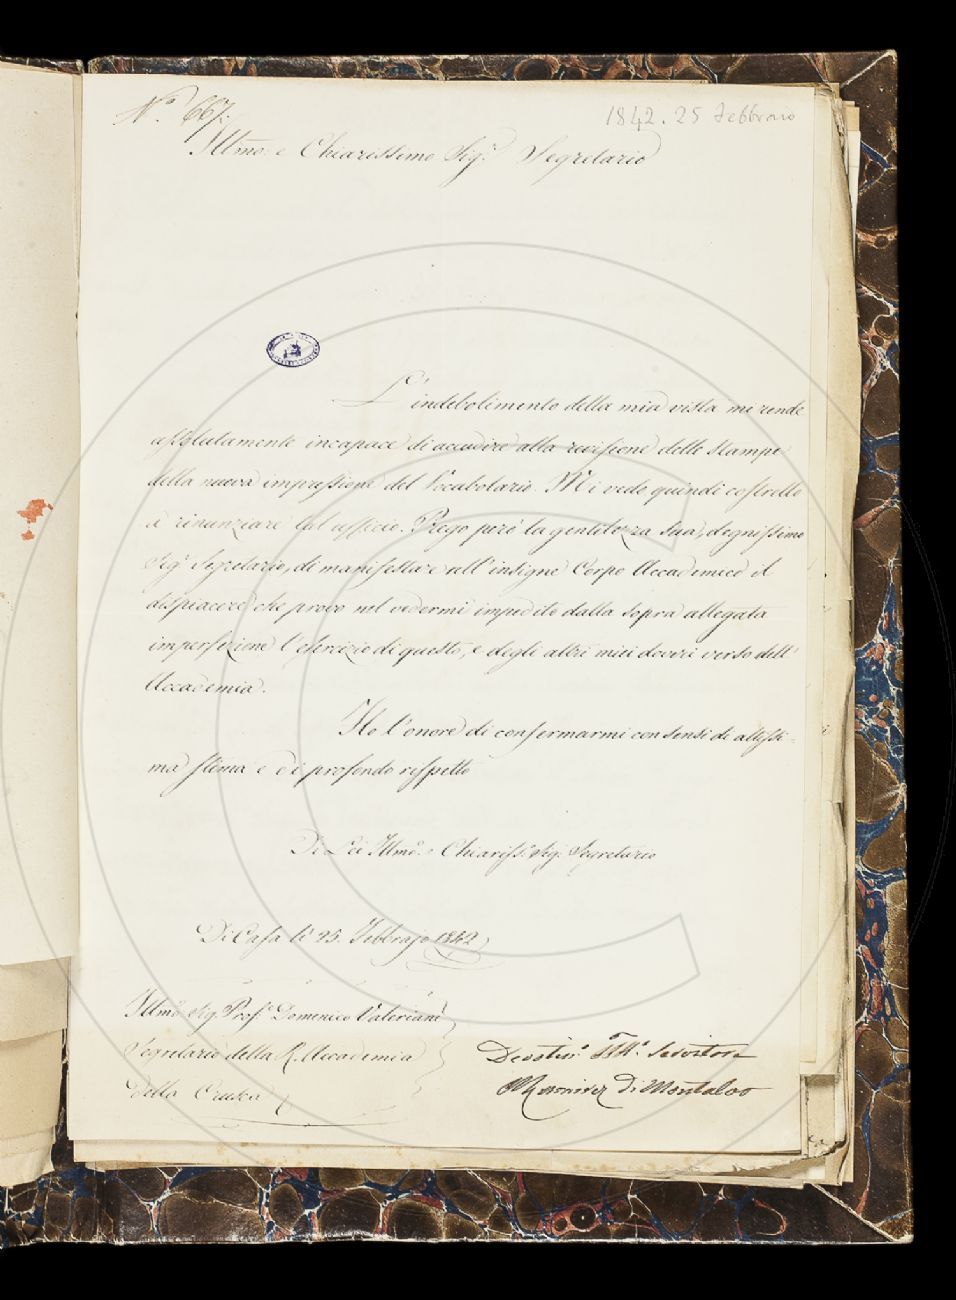 N.º 667.
1842. 25 Febbraio
Illmo. e Chiarissimo Sig.r Segretario
L'indebolimento della mia vista mi rende
assolutamente incapace di accudire alla revisione delle stampe
della nuova impressione del Vocabolario. Mi vedo quindi costretto
a rinunziare tal uffizio. Prego però la gentilezza sua, degnissimo
Sig.r Segretario, di manifestare all'insigne Corpo Accademico il
dispiacere che provo nel vedermi impedito dalla sopra allegata
imperfezione l'esercizio di questo, e degli altri miei doveri verso dell'
Accademia.
Ho l'onore di confermarmi con sensi di altissi-
ma stima e di profondo rispetto
Di Lei Illmo. e Chiariss.º Sig. Segretario
Di Casa li 25. Febbrajo 1842
Illmo. Sig. Prof.e Domenico Valeriani
Segretario della R. Accademia
della Crusca
Devotiss.º Servitore
Di Montalvo